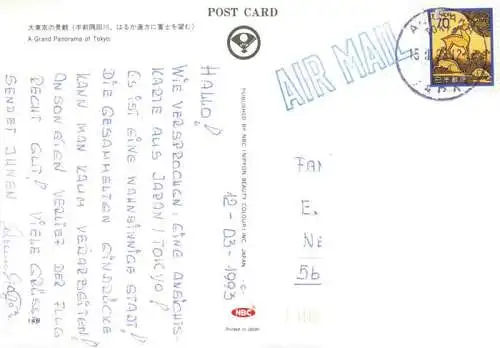 POST CARD
大東京の景観(手前隅田川、はるか遠方に富士を望む)
A Grand Panorama of Tokyo.
AIR MAIL
70
日本郵便
NIPPON
HALLO!
12-03-1993
WIE VERSPROCHEN, EINE ANSICHTS-
KARTE AUS JAPAN / TOKYO!
ES IST EINE WAHNSINNIGE STADT!
DIE GESAMMELTEN EINDRÜCKE
KANN MAN KAUM VERARBEITEN!
ANSONSTEN VERLIEF DER FLUG
RECHT GUT! VIELE GRÜSSE
SENDET IHNEN
PUBLISHED BY NBC (NIPPON BEAUTY COLOUR) INC. JAPAN
NBC
Printed in JAPAN
FA
E.
NE
56